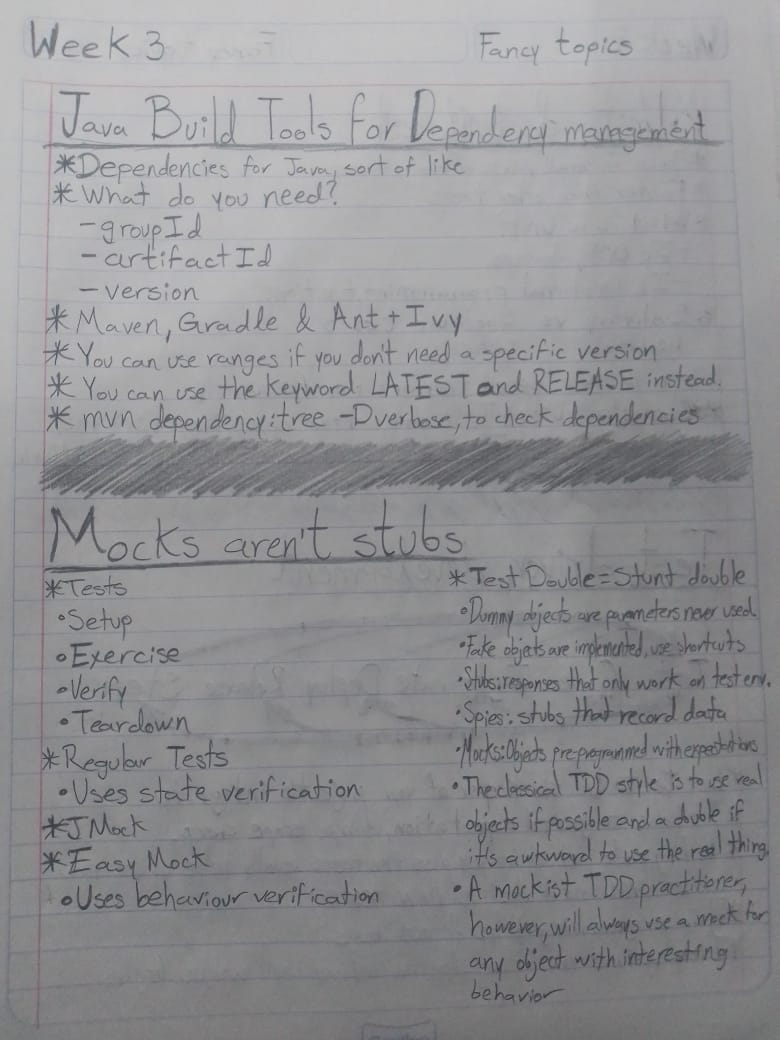 Week 3
Fancy topics
Java Build Tools for Dependency management
*Dependencies for Java, sort of like
*What do you need?
-groupId
-artifactId
-version
* Maven, Gradle & Ant + Ivy
* You can use ranges if you don't need a specific version
* You can use the keyword LATEST and RELEASE instead.
* mvn dependency:tree -Dverbose, to check dependencies
Mocks aren't stubs
*Tests
•Setup
•Exercise
•Verify
•Teardown
*Regular Tests
•Uses state verification
*JMock
*Easy Mock
•Uses behaviour verification
*Test Double = Stunt double
•Dummy objects are parameters never used
•Fake objects are implemented, use shortcuts
•Stubs: responses that only work on test env.
•Spies: stubs that record data
•Mocks: Objects preprogrammed with expectations
•The classical TDD style is to use real
objects if possible and a double if
it's awkward to use the real thing.
•A mockist TDD practitioner,
however, will always use a mock for
any object with interesting
behavior